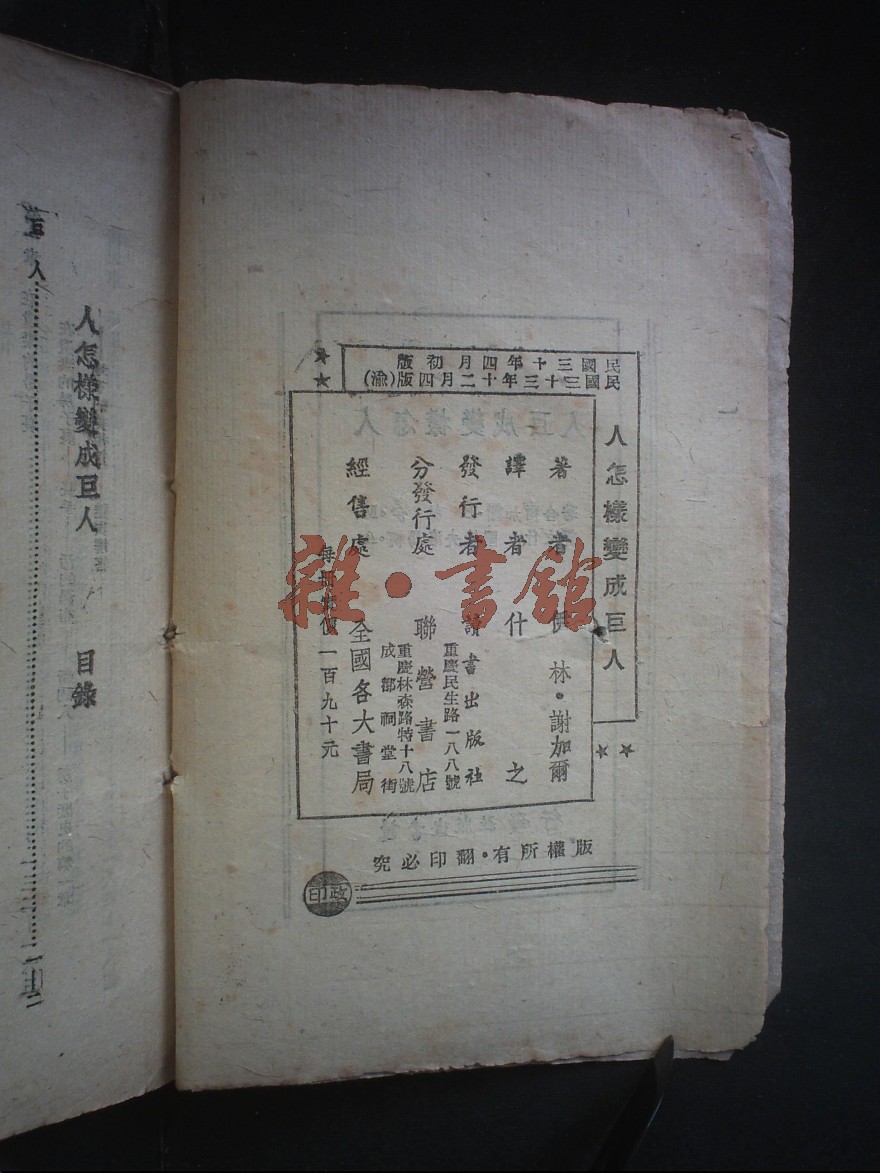 民國三十年四月初版
民國三十三年十二月四版(渝)
人怎樣變成巨人
著者 伊林·謝加爾
譯者 什之
發行者 讀書出版社
重慶民生路一八八號
分發行處 聯營書店
重慶林森路特十八號
成都祠堂街
經售處 全國各大書局
每冊實價一百九十元
版權所有·翻印必究
政印
雜·書館
人怎樣變成巨人 目錄
人